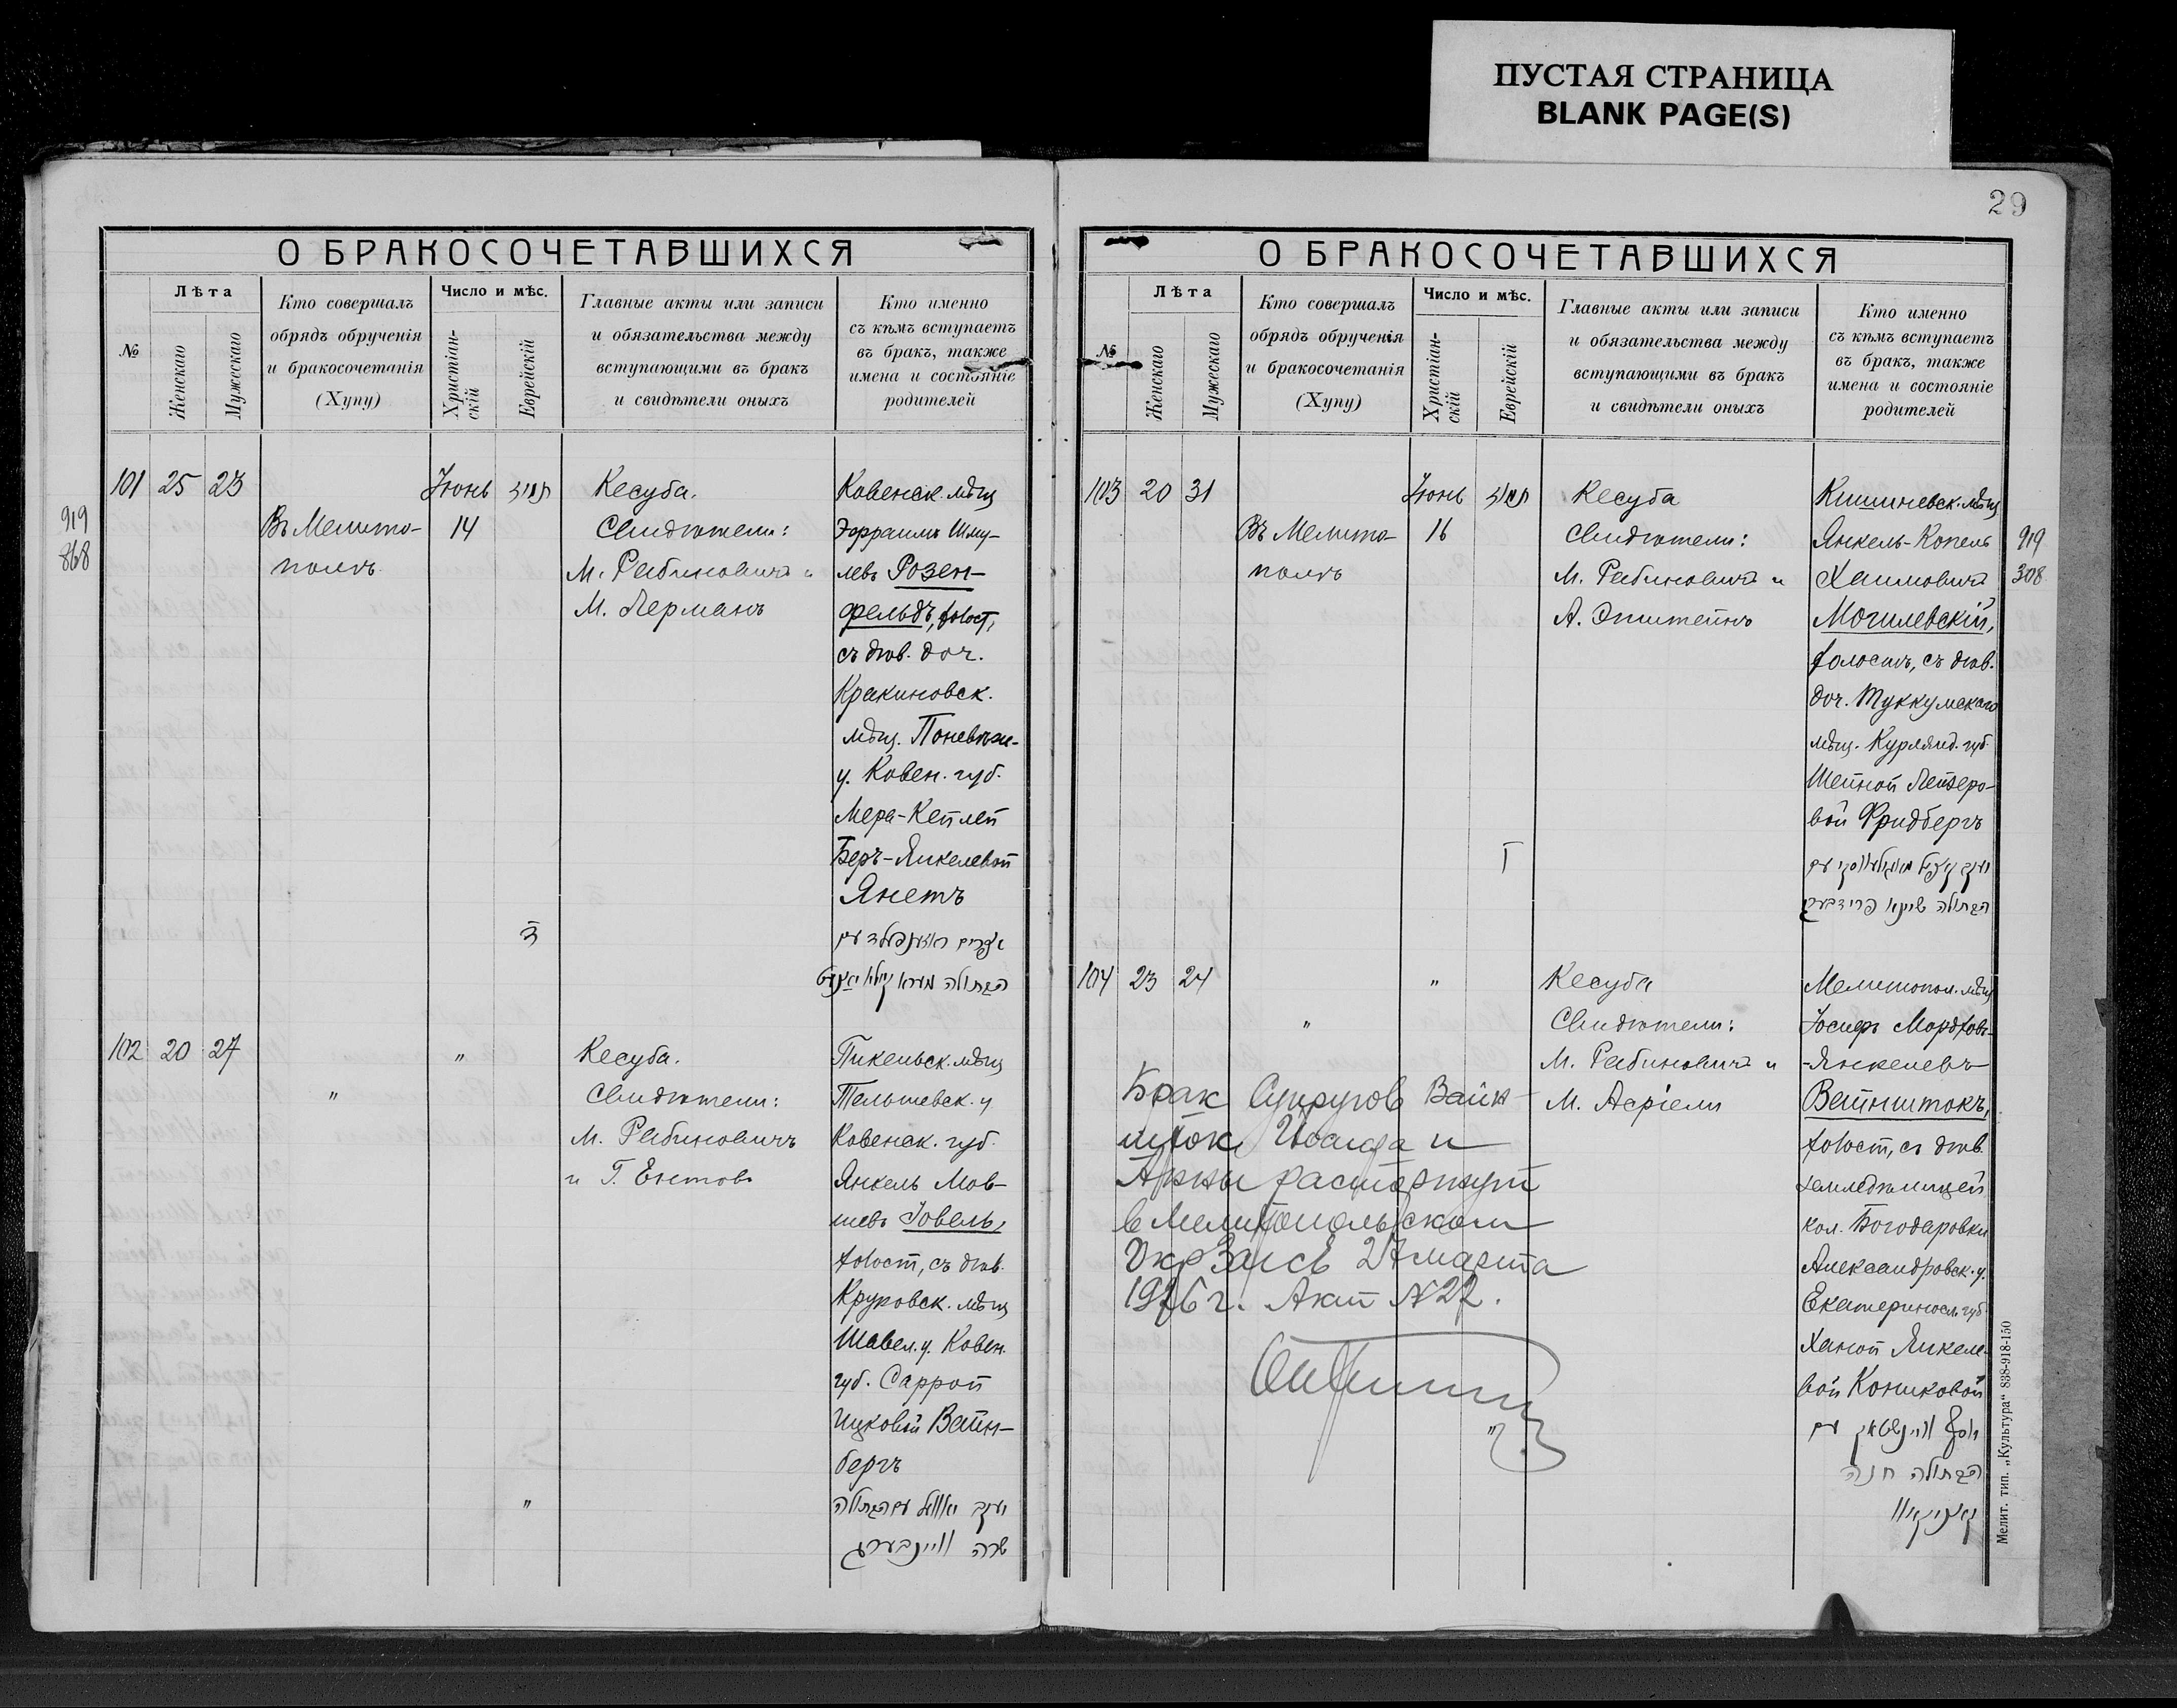 ПУСТАЯ СТРАНИЦА
BLANK PAGE(S)
29
О БРАКОСОЧЕТАВШИХСЯ
№
Лѣта
Женскаго
Мужескаго
Кто совершалъ
обрядъ обрученія
и бракосочетанія
(Хупу)
Число и мѣс.
Христіан-
скій
Еврейскій
Главные акты или записи
и обязательства между
вступающими въ бракъ
и свидѣтели оныхъ
Кто именно
съ кѣмъ вступаетъ
въ бракъ, также
имена и состояніе
родителей
919
868
101 25 23
Въ Мелито-
полѣ
Іюнь
14
Кесуба.
Свидѣтели:
М. Рабиновичъ и
М. Лерманъ
Ковенск. мѣщ
Эфраимъ Шму-
левъ Розен-
фельдъ, холост,
съ дѣв. доч.
Кракиновск.
мѣщ. Поневѣж-
у. Ковен. губ.
Мера-Кейлей
Беръ-Янкелевой
Янетъ
ד
אפרים ראזענפעלד עם
הבתולה מערא קיילא יאנעט
102 20 27
"
"
Кесуба.
Свидѣтели:
М. Рабиновичъ
и Г. Ентовъ
Пикельск. мѣщ
Тельшевск. у
Ковенск. губ.
Янкель Мов-
шевъ Іовель,
холост, съ дѣв.
Круковск. мѣщ
Шавел. у. Ковен.
губ. Саррой
Ицковой Вайн-
бергъ
"
יעקב יאוועל עם הבתולה
שרה וויינבערג
О БРАКОСОЧЕТАВШИХСЯ
№
Лѣта
Женскаго
Мужескаго
Кто совершалъ
обрядъ обрученія
и бракосочетанія
(Хупу)
Число и мѣс.
Христіан-
скій
Еврейскій
Главные акты или записи
и обязательства между
вступающими въ бракъ
и свидѣтели оныхъ
Кто именно
съ кѣмъ вступаетъ
въ бракъ, также
имена и состояніе
родителей
103 20 31
Въ Мелито-
полѣ
Іюнь
16
Кесуба
Свидѣтели:
М. Рабиновичъ и
А. Эпштейнъ
Кишиневск. мѣщ
Янкель-Копель
Хаимовичъ
Могилевскій,
холостъ, съ дѣв.
доч. Туккумскаго
мѣщ. Курлянд. губ.
Шейной Лейзеро-
вой Фридбергъ
919
308
יעקב קאפיל מאגילעווסקי עם
הבתולה שיינא פרידבערג
104 23 24
"
"
Кесуба
Свидѣтели:
М. Рабиновичъ и
М. Асріели
Мелитопол. мѣщ
Іосифъ Мордхов-
-Янкелевъ
Вайнштокъ,
холост, съ дѣв.
землевладѣлицей
кол. Богодаровки
Александровск. у.
Екатериносл. губ.
Ханой Янкеле-
вой Кониковой
"
יוסף וויינשטאק עם
הבתולה חנה
קאניקאוו
Брак Супругов Вайн-
шток Иосифа и
Анны расторгнут
в Мелитопольском
ОкрЗагсе 27 марта
1926 г. Акт N 22.
Мелит. тип. „Культура“ 838-918-150